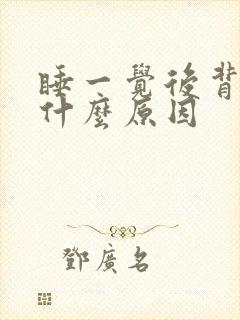 睡一覺後背
什麼原因
鄧廣名